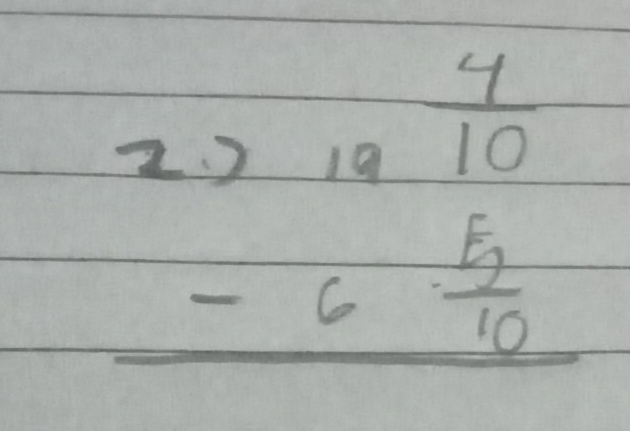 2.) 19 4/10
- 6 5/10